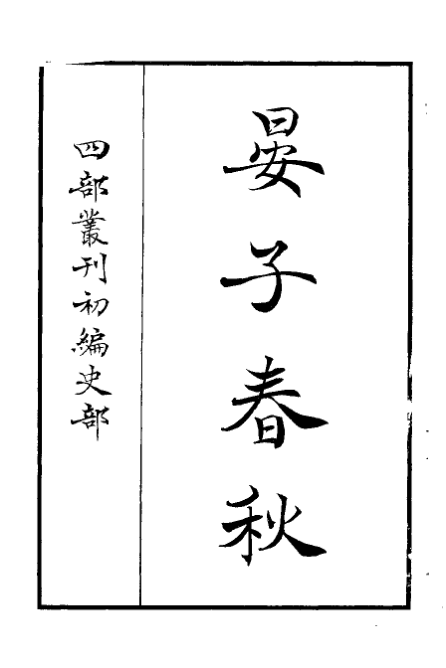 晏子春秋
四部叢刊初編史部